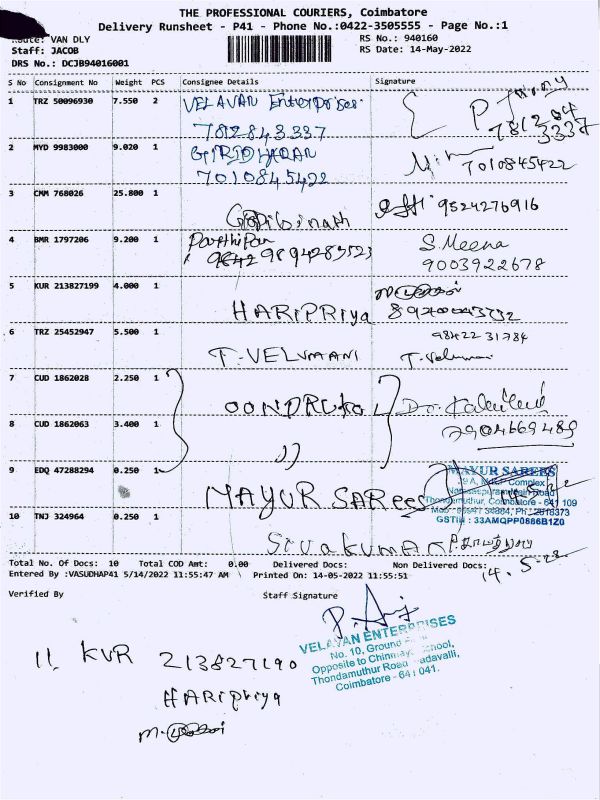 THE PROFESSIONAL COURIERS, Coimbatore
Delivery Runsheet - P41 - Phone No:0422-3505555 - Page No.:1
VAN DLY
Staff: JACOB
DRS No.: DCJB94016001
RS No.: 940160
RS Date: 14-May-2022
S No Consignment No Weight PCS Consignee Details Signature
1 TRZ 50096930 7.550 2 VELAVAN Enterprises
7812843337
2 MYD 9983000 9.020 1 GIRIDHARAN
7010845422 7010845422
3 CMM 768026 25.800 1
Gopibinath 9524276916
4 BMR 1797206 9.200 1 Parthipan S. Meena
9894283523 9003922678
5 KUR 213827199 4.000 1
HARIPRIYA
6 TRZ 25452947 5.500 1 98422 31784
T. VELUMANI T. Velumani
7 CUD 1862028 2.250 1
8 CUD 1862063 3.400 1 7904669489
9 EDQ 47288294 0.250 1 MAYUR SAREES
MAYUR SAREES
GSTIN : 33AMQPP0886B1Z0
10 TNJ 324964 0.250 1
SIVAKUMAR
Total No. Of Docs: 10 Total COD Amt: 0.00 Delivered Docs: Non Delivered Docs:
14.5-22
Entered By :VASUDHAP41 5/14/2022 11:55:47 AM Printed On: 14-05-2022 11:55:51
Verified By Staff Signature
VELAVAN ENTERPRISES
No. 10, Ground
Opposite to Chinmaya School,
Thondamuthur Road Vadavalli,
Coimbatore - 641 041.
11. KUR 213827190
HARIPRIYA